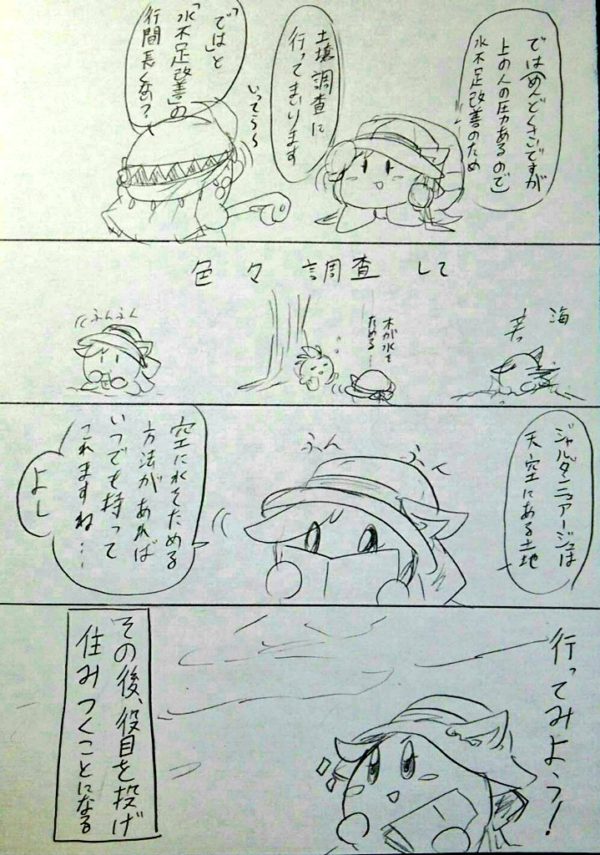 では(めんどくさいですが
上の人の圧力あるので)
水不足改善のため
土壌調査に
行ってまいります
「では」と
「水不足改善」の
行間長くない？
いってら〜
色々 調査 して
海
木が水を
ためる…
ふんふん
ジャルダンニュアージュは
天空にある土地
ふん
ふん
空に水をためる
方法があれば
いつでも持って
これますね…
よし
行ってみよう！
その後、役目を投げ
住みつくことになる